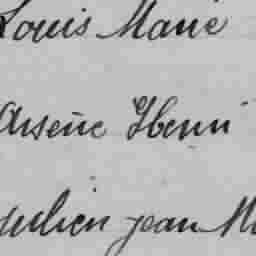 Louis Marie
Arsène Henri
Julien jean M